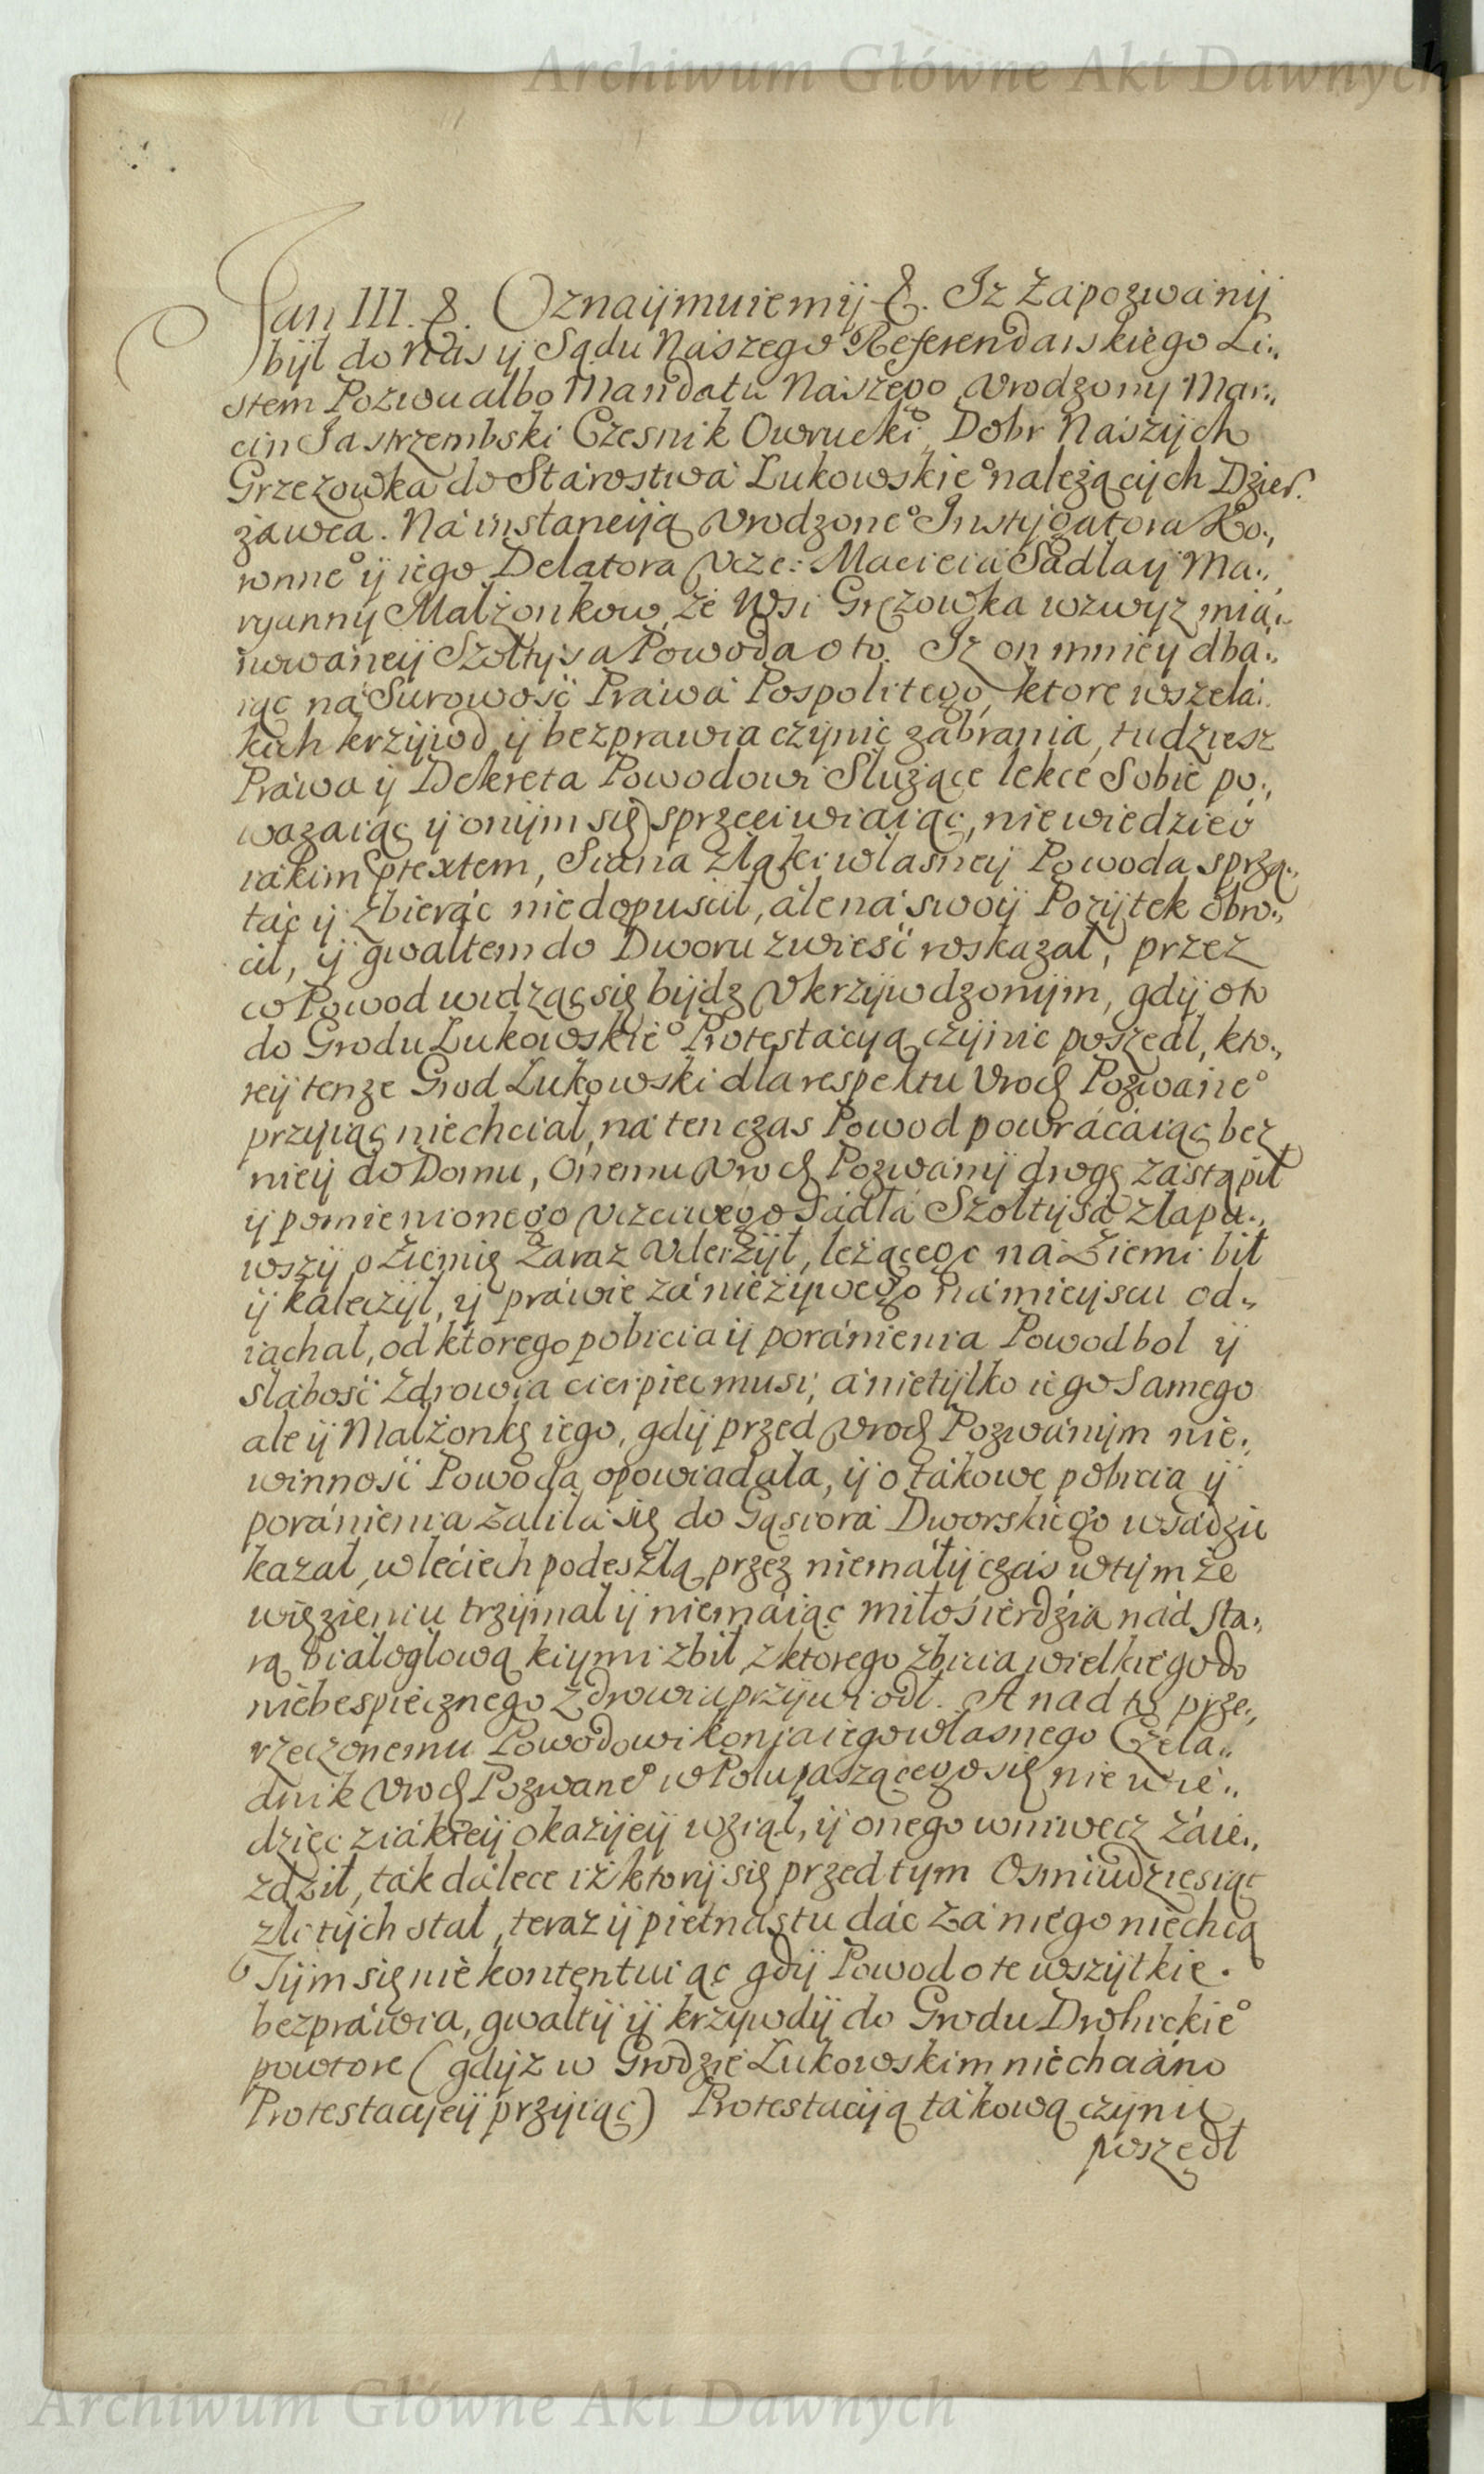 Archiwum Główne Akt Dawnych
Jan III. &. Oznaijmuiemij &. Iz Zapozwanij
bijl do Nas ij Sądu Naszego Referendarskiego Li„
stem Pozwu albo Mandatu Naszego Vrodzony Mar„
cin Jastrzembski Czesnik Owrucki, Dobr Naszijch
Grzezowka do Starostwa Lukowskie° należącijch Dzier„
żawca. Na instancijią Vrodzone° Instijgatora Ko„
ronne° ij iego Delatora Vcze: Macieia Sadla ij Ma„
ryanny Malżonkow, ze Wsi Gręzowka wzwyz mia„
nowaneij Szoltysa Powoda oto. Iz on mnieij dba„
iąc na Surowość Prawa Pospolitego, ktore wszela„
kich krzijwd ij bezprawia czijnić zabrania, tudziesz
Prawa ij Dekreta Powodowi Służące lekce Sobie po„
ważaiąc ij onijm się sprzeciwiaiąc, niewiedzieć
iakim prętextem, Siana z łąki własneij Powoda sprzą„
tać ij zbierać niedopuscił, ale na swoij Pozijtek obro„
cił, ij gwałtem do Dworu zwieść roskazał, przez
co Powod widząc się bijdz Vkrzijwdzonijm, gdij oto
do Grodu Lukowskie° Protestacyą czijnic poszedl, kto„
reij tenze Grod Lukowski dla respektu Vrodz Pozwane°
przijiąc niechciał, na ten czas Powod powracaiąc bez
nieij do Domu, onemu Vrodz Pozwanij drogę zastąpił
ij pomienionego Vczciwego Sadła Szoltijsa złapa„
wszij o Ziemię zaraz Vderzijł, leżącego na Ziemi bił
ij kaleczijł, ij prawie za nieżijwego na mieijscu od„
iachał, od ktorego pobicia ij poranienia Powod bol ij
słabość zdrowia cierpiec musi, a nietijlko iego Samego
ale ij Malżonkę iego, gdij przed Vrodz Pozwanijm nie„
winność Powoda opowiadała, ij o takowe pobicia ij
poranienia żaliła się do Gąsiora Dworskiego wsadzić
kazał, w leciech podeszłą przez niemałij czas w tijmże
więzieniu trzijmał ij niemaiąc miłosierdzia nad sta„
rą Białogłową kiymi zbił, z ktorego zbicia wielkiego do
niebespiecznego zdrowia przijwiodł. A nad to prze„
rzeczonemu Powodowi konia iego własnego Czela„
dnik Vrodz Pozwane° w Polu pasządzego się nie wie„
dziec z iakieij okazijeij wziął, ij onego wniwecz zaie„
zdził, tak dalece iż ktorij się przed tym Osmiudziesiąt
złotijch stał, teraz ij piętnastu dać za niego niechcą
Tijm się nie kontentuiąc gdij Powod o te wszijtkie
bezprawia, gwałtij ij krzijwdij do Grodu Drohickie°
powtore (gdijż w Grodzie Lukowskim niechciano
Protestacijeij przijiąć) Protestacijią takową czijnić
poszedł
Archiwum Główne Akt Dawnych